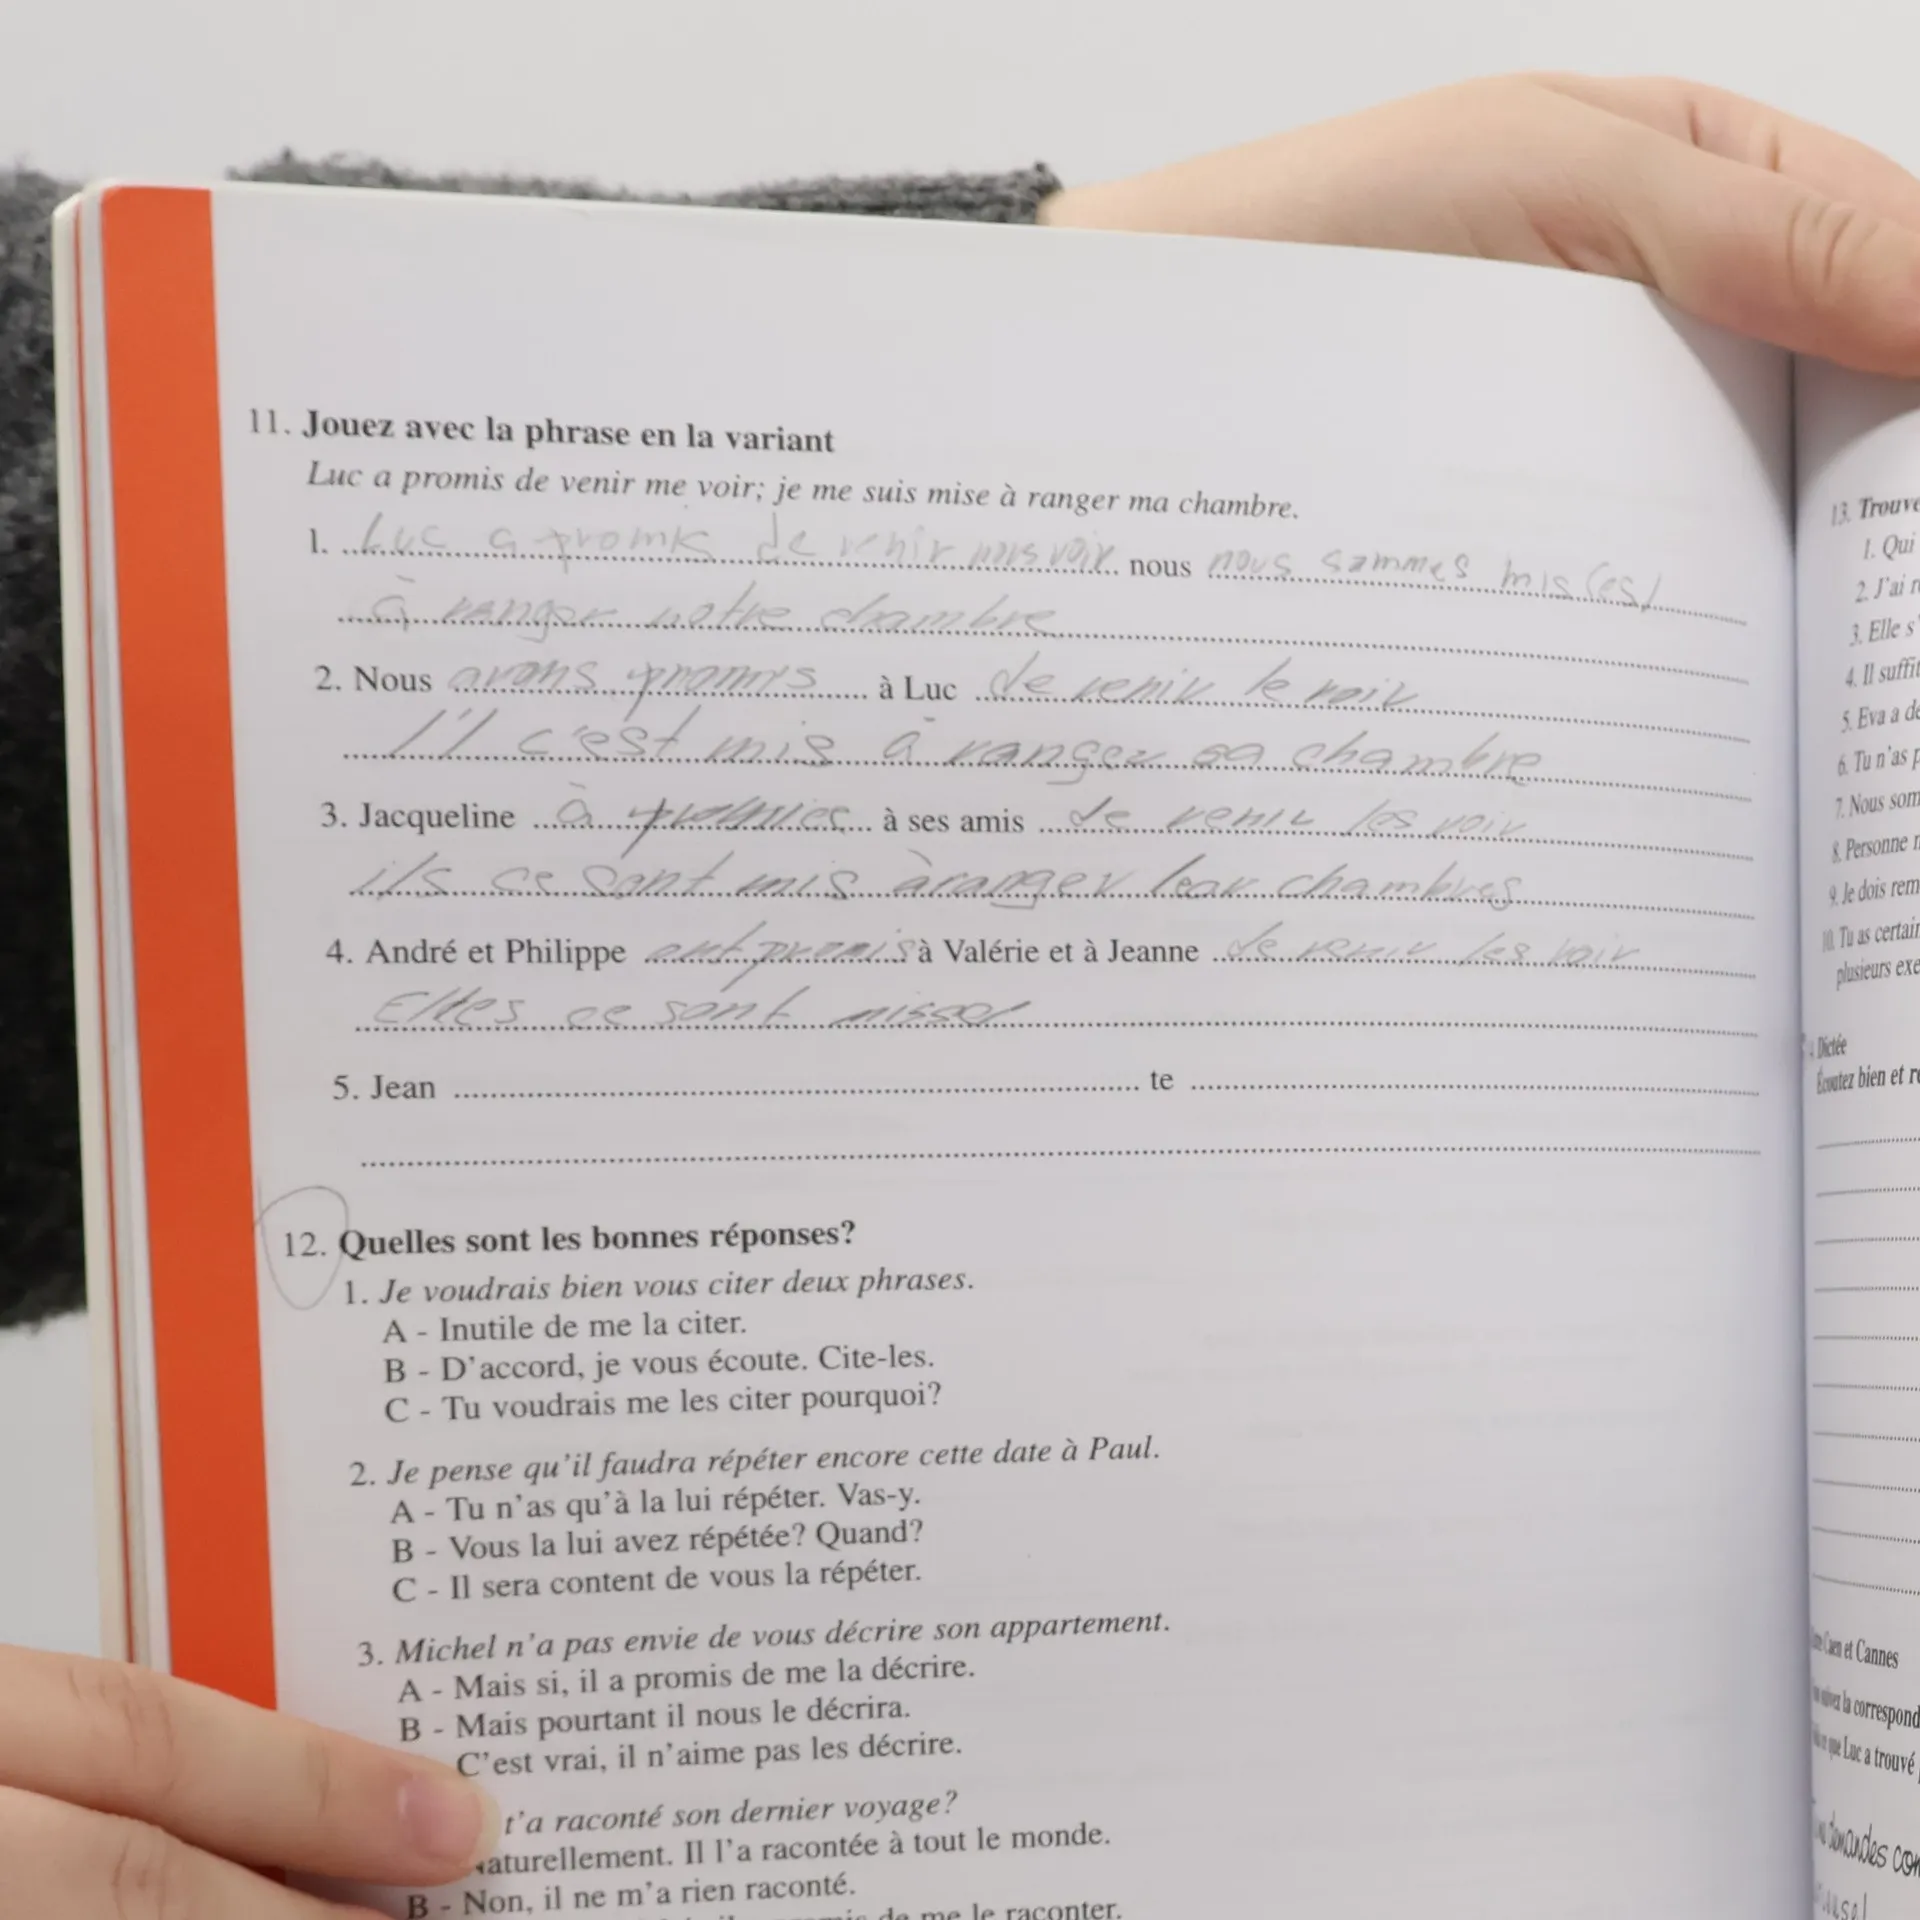 11. Jouez avec la phrase en la variant
Luc a promis de venir me voir; je me suis mise à ranger ma chambre.
1. Luc a promis de venir nous voir. nous nous sommes mis(es)
à ranger notre chambre
2. Nous avons promis à Luc de venir le voir
Il c'est mis à ranger sa chambre
3. Jacqueline à promies à ses amis de venir les voir
ils ce sont mis àranger leur chambres
4. André et Philippe ont promis à Valérie et à Jeanne de venir les voir
Elles ce sont misses
5. Jean te
12. Quelles sont les bonnes réponses?
1. Je voudrais bien vous citer deux phrases.
A - Inutile de me la citer.
B - D'accord, je vous écoute. Cite-les.
C - Tu voudrais me les citer pourquoi?
2. Je pense qu'il faudra répéter encore cette date à Paul.
A - Tu n'as qu'à la lui répéter. Vas-y.
B - Vous la lui avez répétée? Quand?
C - Il sera content de vous la répéter.
3. Michel n'a pas envie de vous décrire son appartement.
A - Mais si, il a promis de me la décrire.
B - Mais pourtant il nous le décrira.
C'est vrai, il n'aime pas les décrire.
t'a raconté son dernier voyage?
aturellement. Il l'a racontée à tout le monde.
B - Non, il ne m'a rien raconté.
de me le raconter.
13. Trouve
1. Qui
2. J'ai r
3. Elle s'
4. Il suffit
5. Eva a de
6. Tu n'as p
7. Nous som
8. Personne n
9. Je dois rem
10. Tu as certain
plusieurs exe
Dictée
Écoutez bien et re
Caen et Cannes
la correspond
que Luc a trouvé
demandes com